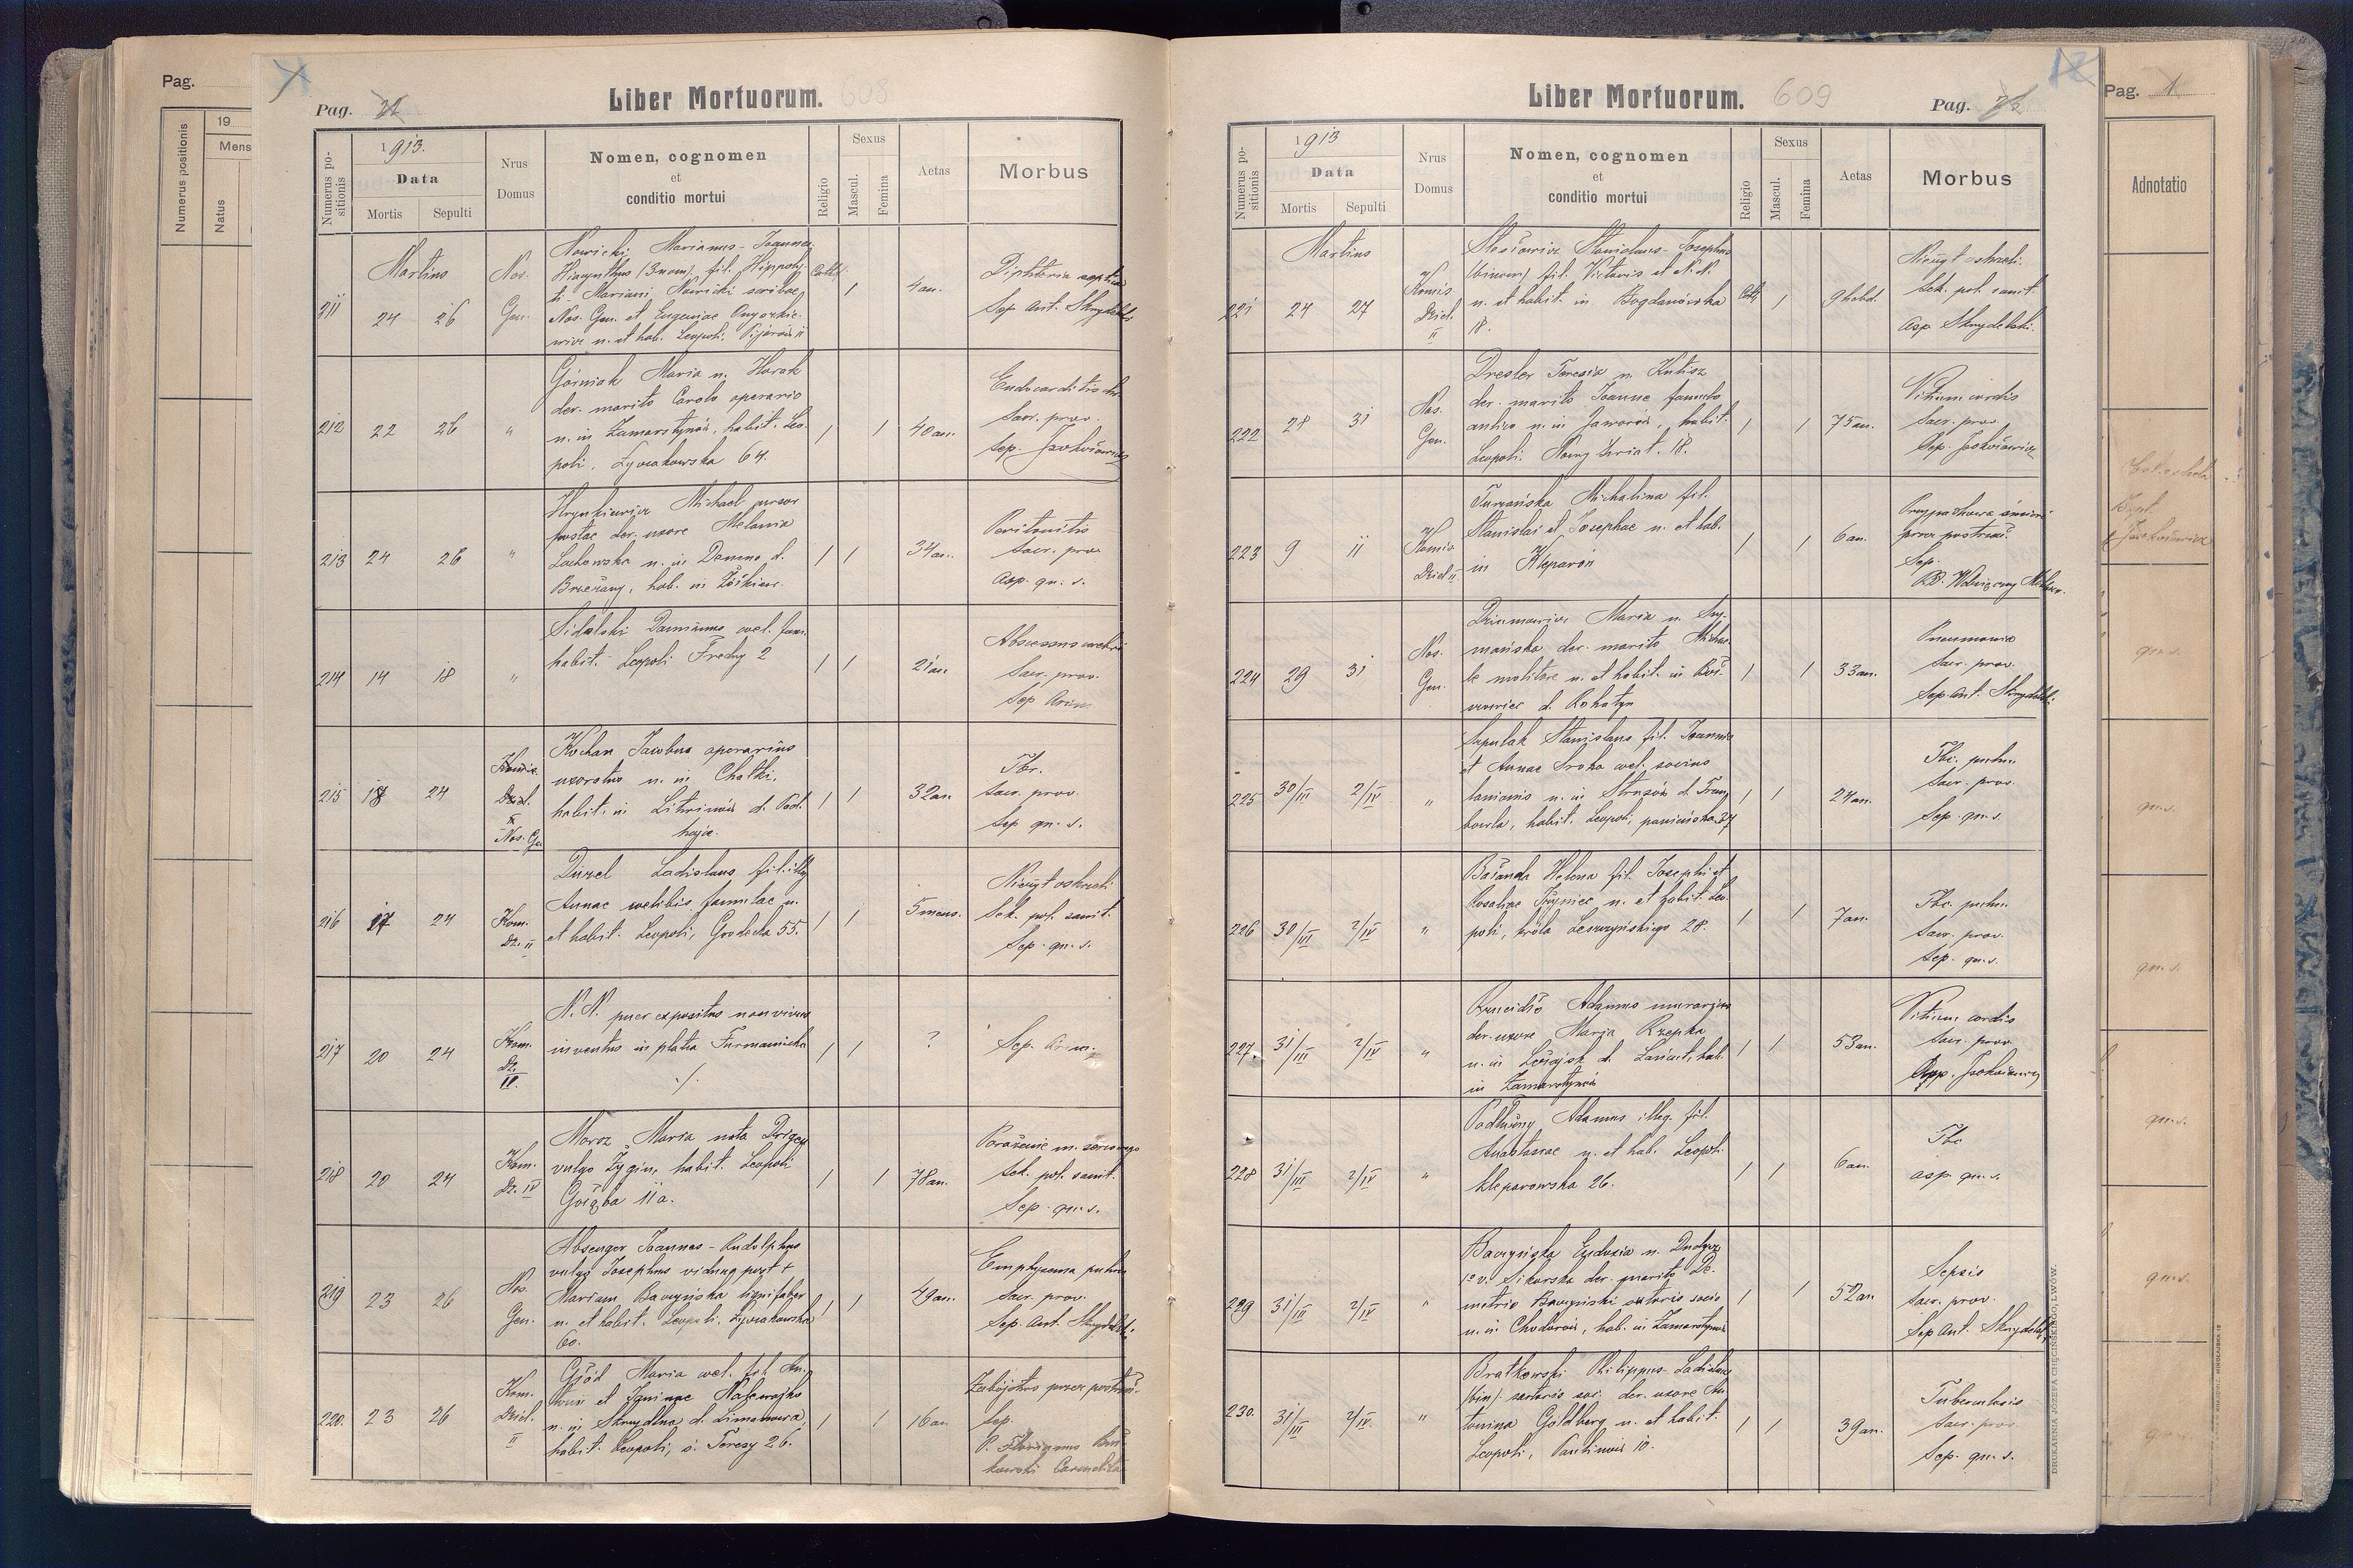 Pag.
Numerus positionis
19
Mens
Natus
Pag. 21
Liber Mortuorum. 608
Numerus positionis
1913.
Data
Mortis
Sepulti
Nrus
Domus
Nomen, cognomen
et
conditio mortui
Religio
Sexus
Mascul.
Femina
Aetas
Morbus
Martius
211
24 26
Nos.
Gen.
Nowicki Marianus-Joannes
Hiacynthus (3nom) fil. Hippoly
ti Mariani Nowicki scribae
Nos. Gen. et Eugeniae
n. et hab. Leopoli, Pijarów 11
Cath.
1
4 an.
Diphteria septica
Sep Ant. Skrydelski
212 22 26 "
Górniak Maria n. Horak
der. marito Carolo operario
n. in Zamarstynów, habit. Leo
poli, Łyczakowska 64.
1 1 40 an.
Endocarditis chr.
Sacr. prov.
Sep.
213 24 26 "
Hrynkiewicz Michael cursor
postae der. uxore Melania
Lachowska n. in Demno d.
Brzeżany, hab. in Żółkiew
1 1 34 an.
Peritonitis
Sacr. prov
Asp. qu. s.
214 14 18 "
Sidelski Damianus cael. fam.
habit. Leopoli Fredry 2
1 1 21 an.
Abscessus cerebri
Sacr. prov.
Sep
215 18 24
Komis.
Dziel.
Nos. Ge
Kochan Jacobus operarius
uxoratus n. in Chatki,
habit. in Litwinów d. Pod
hajce.
1 1 32 an.
Tbc.
Sacr. prov.
Sep qu. s.
216 17 24
Kom.
Dz. II
Duzel Ladislaus fil. illeg
Annae caelibis famulae n.
et habit. Leopoli, Grodecka 55.
1 1 5 mens.
Nieżyt oskrzeli
Sek. pol. sanit.
Sep. qu. s.
217 20 24
Kom.
Dz.
IV.
N. N. puer expositus non vivus
inventus in platea Furmańska
./.
1 1 ?
Sep.
218 20 24
Kom.
Dz. IV
Moroz Maria nata
vulgo Zygin, habit. Leopoli
Gołąba 11a.
1 1 78 an.
Porażenie m. sercowego
Sek. pol. sanit.
Sep. qu. s.
219 23 26
Nos.
Gen.
Absenger Joannes-Rudolphus
vulgo Josephus viduus post +
Mariam Baczyńska lignifaber
n. et habit. Leopoli, Łyczakowska
60.
1 1 49 an.
Emphysema pulm
Sacr. prov.
Sep. Ant. Skrydelski.
220. 23 26
Kom.
Dziel.
II
Maria cael. fil. An
tonii et
n. in Skrzydlna d. Limanowa,
habit. Leopoli, ś. Teresy 26.
1 1 16 an
Zabójstwo przez postrzał.
Sep.
P. Florianus
Carmelita
Liber Mortuorum. 609
Pag. 22
12
Numerus positionis
1913
Data
Mortis
Sepulti
Nrus
Domus
Nomen, cognomen
et
conditio mortui
Religio
Sexus
Mascul.
Femina
Aetas
Morbus
Martius
221 24 27
Komis.
Dziel.
II
Stanislaus-Josephus
(binom) fil. Victoris et N. N.
n. et habit. in Bogdanówka
18.
Cath. 1 9 hebd.
Nieżyt oskrzeli.
Sek. pol. sanit.
Asp Skrydelski.
222 28 31
Nos.
Gen.
Dresler Teresia n. Kutisz
der. marito Joanne famulo
antico n. in Jaworów, habit.
Leopoli. Nowy Świat. 18.
1 1 75 an.
Vitium cordis
Sacr. prov.
Sep.
223 9 11
Komis
Dziel II
Turzańska Michalina fil.
Stanislai et Josephae n. et hab.
in Kleparów
1 1 6 an.
Przypadkowa śmierć
przez postrzał.
Sep.
224 29 31
Nos.
Gen.
Maria n. Szy-
mańska der. marito Micha-
le molitore n. et habit. in
d. Rohatyn
1 1 33 an.
Pneumonia
Sacr. prov.
Sep. Ant. Skrydelski.
225 30/III 2/IV "
Szpulak Stanislaus fil. Joannis
et Annae Sroka cael. socius
lanionis n. in Strusów d. Trem
bowla, habit. Leopoli, 37
1 1 24 an.
Tbc. pulm.
Sacr. prov.
Sep. qu. s.
226 30/III 2/IV "
Bażanda Helena fil. Josephi et
Rosaliae n. et habit. Leo
poli, króla Leszczyńskiego 28.
1 1 7 an.
Tbc. pulm.
Sacr. prov.
Sep. qu. s.
227. 31/III 2/IV "
Adamus murarius
der. uxore Marja Rzepka
n. in Leżajsk d. Łańcut, hab.
in Zamarstynów
1 1 53 an.
Vitium cordis
Sacr. prov
228 31/III 2/IV "
Podłużny Adamus illeg. fil.
Anastasiae n. et hab. Leopoli
Kleparowska 26.
1 1 6 an.
Tbc
asp. qu. s.
229 31/III 2/IV "
Baczyńska Eudoxia n.
1º v. Sikorska der. marito De-
metrio Baczyński sutoris socio
n. in Chodorów, hab. in Zamarstynów
1 1 52 an
Sepsis
Sacr. prov.
Sep Ant. Skrydelski
230. 31/III 2/IV. "
Bratkowski Philippus-Ladislaus
(bin) sartoris soc. der. uxore An
tonina Goldberg n. et habit.
Leopoli, Paulinów 10.
1 1 39 an.
Tuberculosis
Sacr. prov.
Sep. qu. s.
DRUKARNIA JÓZEFA CIECIŃSKIEGO, LWÓW.
Pag. 1
Adnotatio
qu. s.
qu. s.
qu. s.
qu. s.
qu. s.